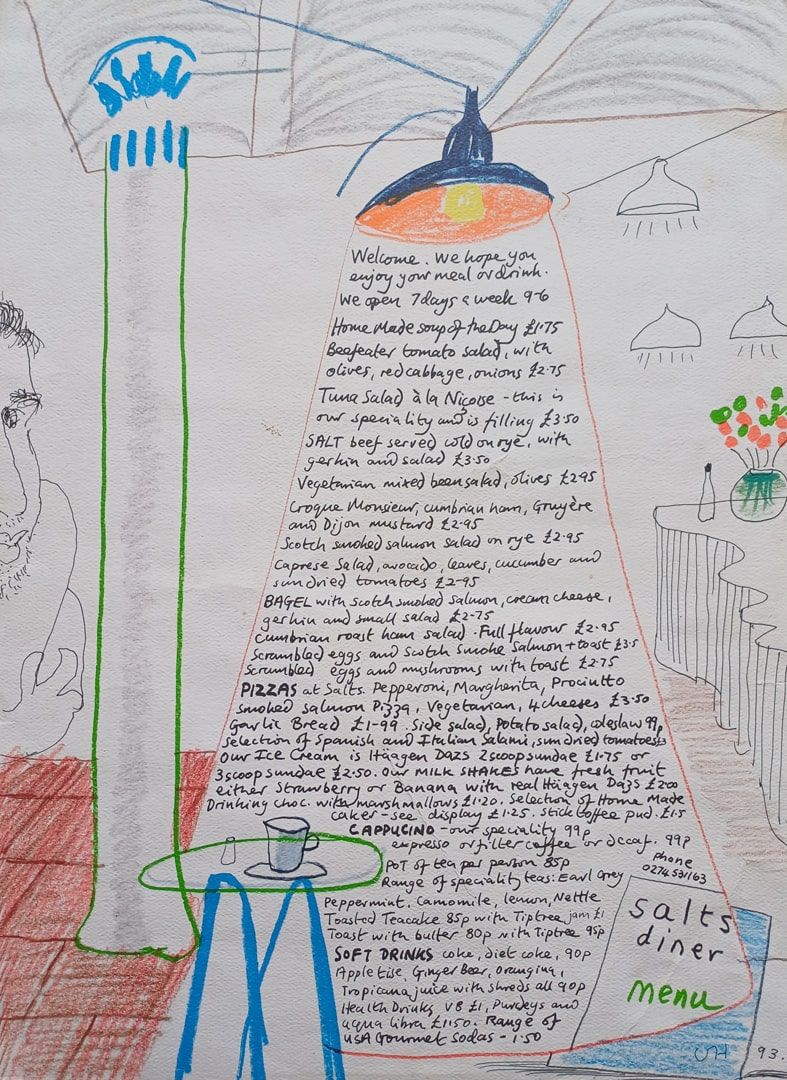 Welcome. We hope you
enjoy your meal or drink.
We open 7 days a week 9-6
Home Made soup of the Day £1·75
Beefeater tomato salad, with
olives, red cabbage, onions £2·75
Tuna Salad à la Niçoise - this is
our speciality and is filling £3·50
SALT beef served cold on rye, with
gerkin and salad £3·50
Vegetarian mixed bean salad, olives £2·95
Croque Monsieur, cumbrian ham, Gruyère
and Dijon mustard £2·95
Scotch smoked salmon salad on rye £2·95
Caprese Salad, avocado, leaves, cucumber and
sundried tomatoes £2-95
BAGEL with scotch smoked salmon, cream cheese,
gerkin and small salad £2-75
Cumbrian roast ham salad · Full flavour £2·95
Scrambled eggs and Scotch smoke salmon + toast £3·5
Scrambled eggs and mushrooms with toast £2·75
PIZZAS at Salts. Pepperoni, Margharita, Prociutto
smoked salmon Pizza, Vegetarian, 4 cheeses £3·50
Garlic Bread £1-99. Side salad, Potato salad, coleslaw 99p
Selection of Spanish and Italian Salami, sun dried tomatoes
Our Ice Cream is Häagen Dazs 2 scoop sundae £1·75 or
3 scoop sundae £2·50. Our MILK SHAKES have fresh fruit
either Strawberry or Banana with real Häagen Dazs £2·00
Drinking choc. with marshmallows £1·20. Selection of Home Made
cakes - see display £1·25. Stick toffee pud. £1·5
CAPPUCINO - our speciality 99p
espresso or filter coffee or decaf. 99p
POT of tea per person 85p
Range of speciality teas: Earl Grey
Peppermint, Camomile, lemon, Nettle
Toasted Teacake 85p with Tiptree jam £1
Toast with butter 80p with Tiptree 95p
SOFT DRINKS coke, diet coke, 90p
Appletise, Ginger Beer, orangina,
Tropicana juice with shreds all 90p
Health Drinks V8 £1, Purdeys and
aqua libra £1·50. Range of
USA Gourmet Sodas - 1·50
phone
0274 531163
salts
diner
menu
DH 93.